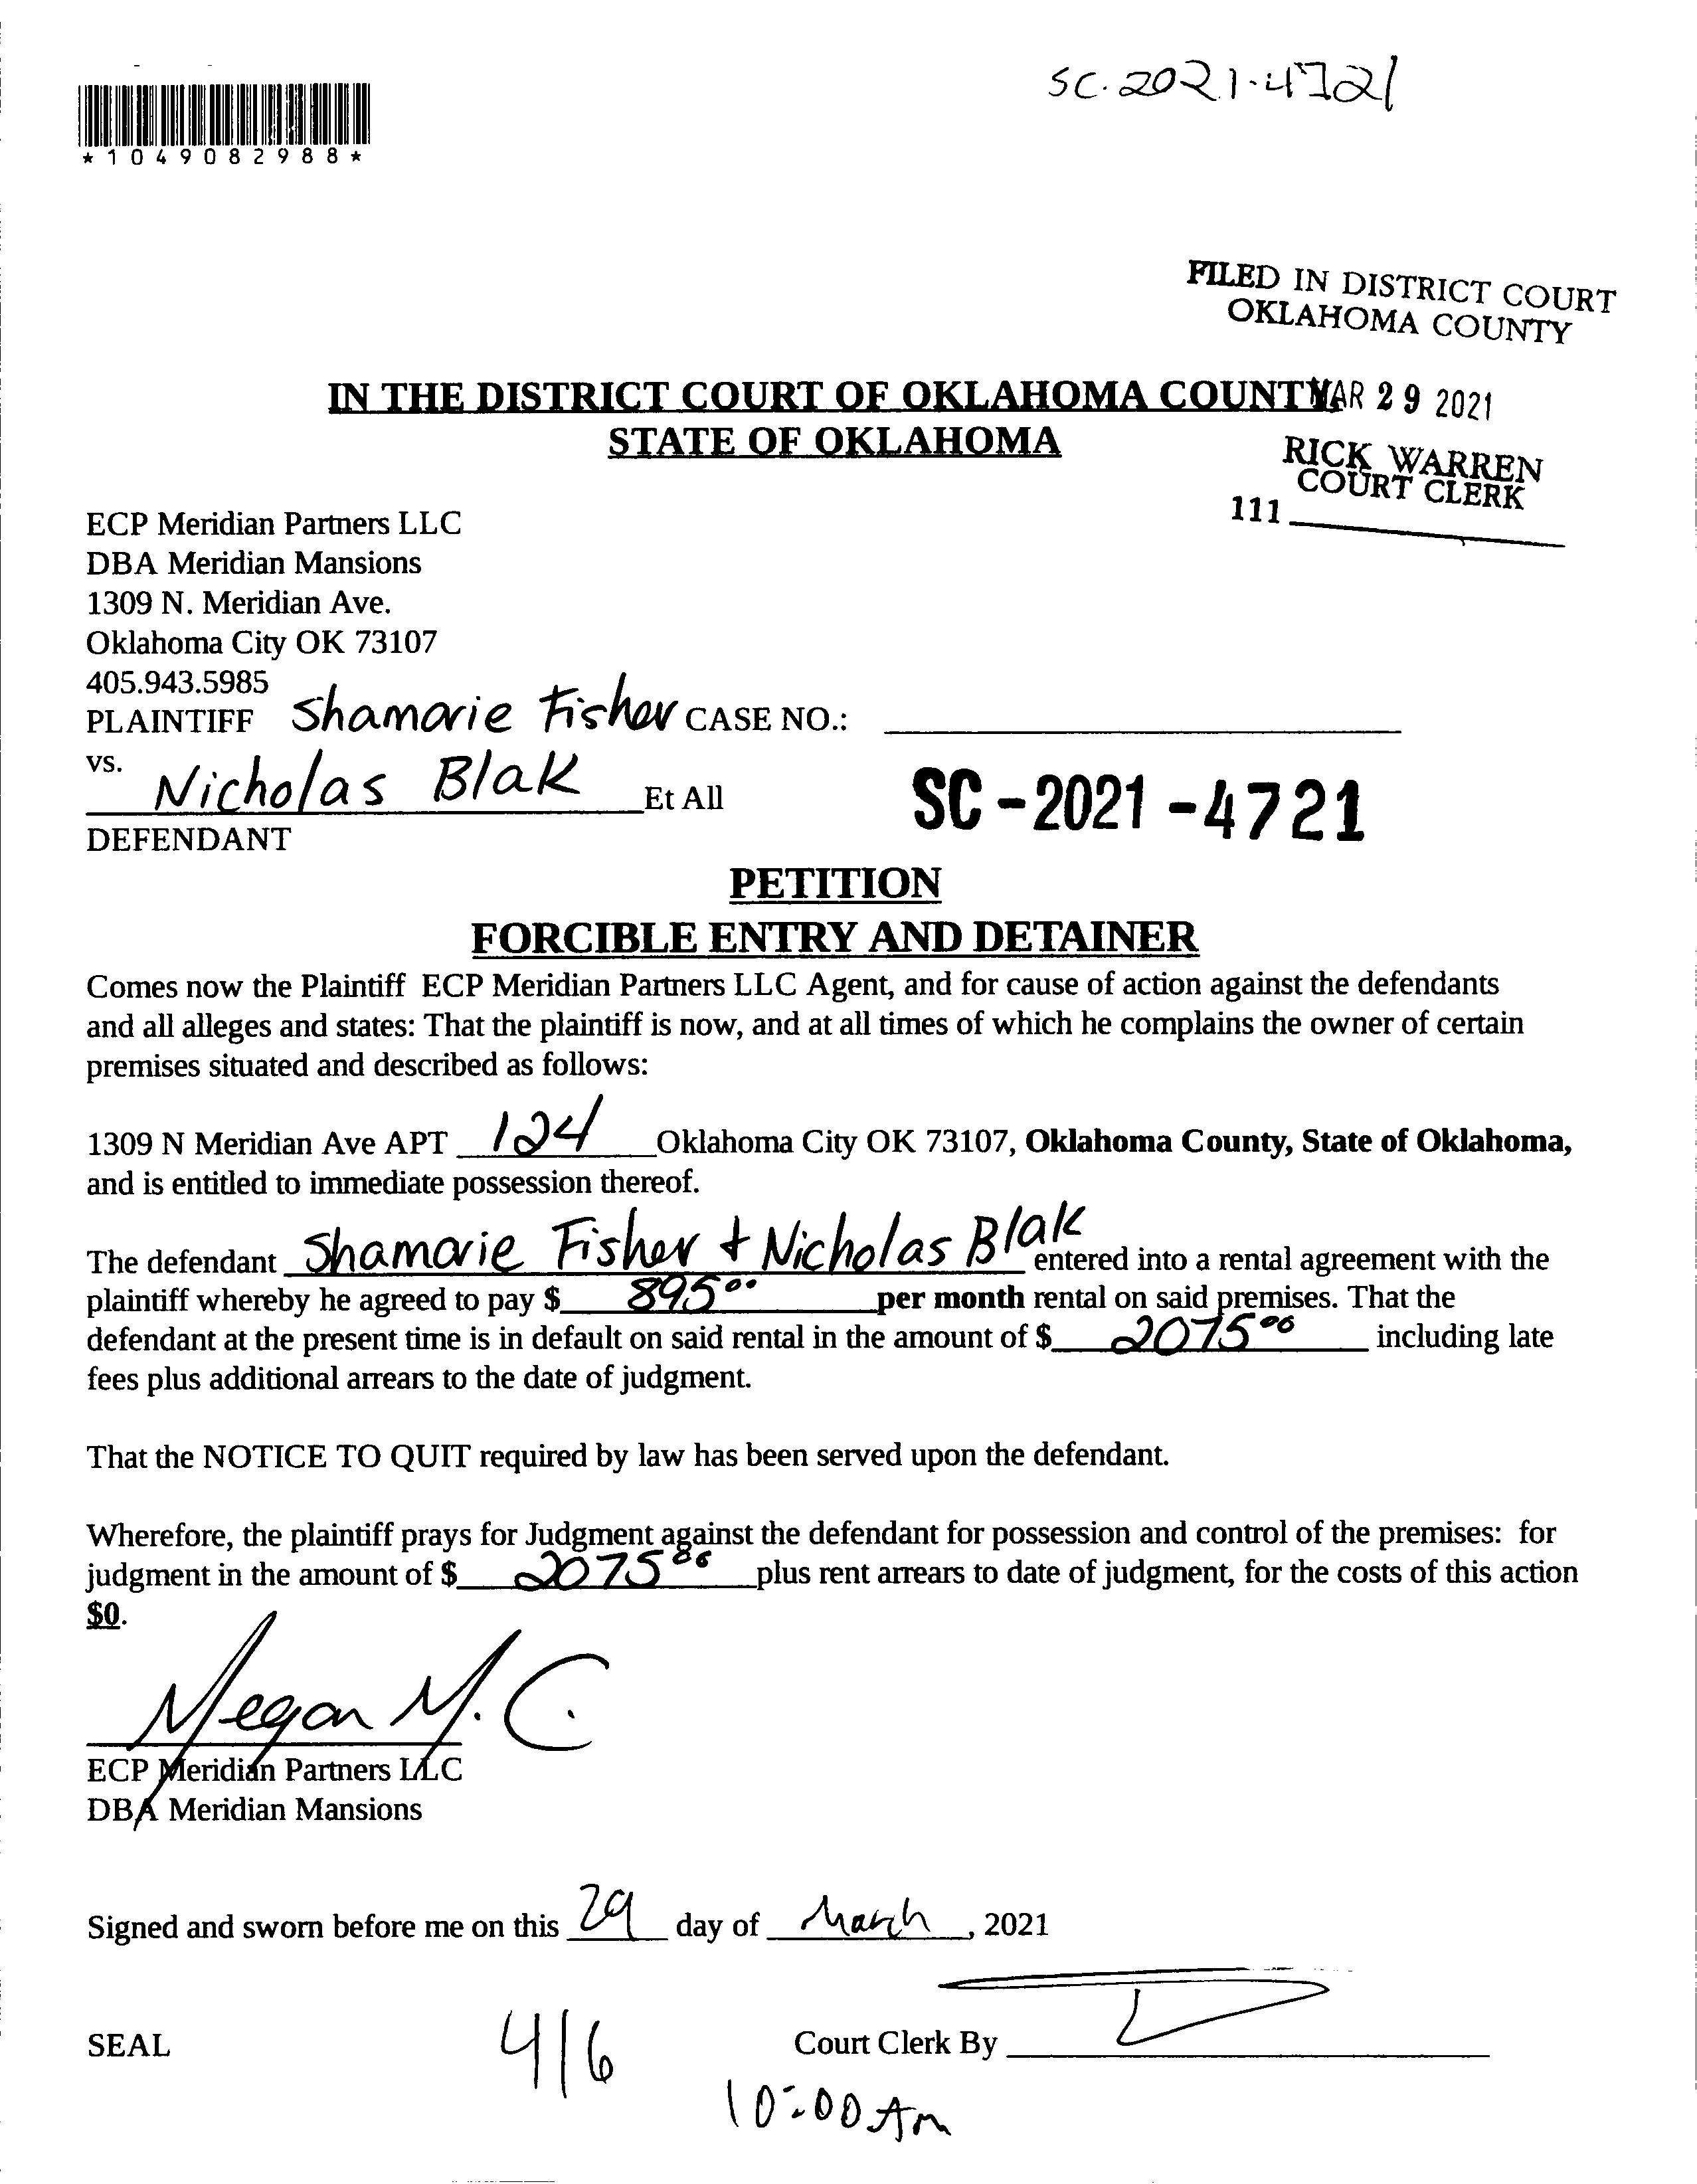 SC-2021-4721
*1049082988*
FILED IN DISTRICT COURT
OKLAHOMA COUNTY
IN THE DISTRICT COURT OF OKLAHOMA COUNTY
MAR 29 2021
STATE OF OKLAHOMA
RICK WARREN
COURT CLERK
111
ECP Meridian Partners LLC
DBA Meridian Mansions
1309 N. Meridian Ave.
Oklahoma City OK 73107
405.943.5985
PLAINTIFF Shamarie Fisher CASE NO.:
vs.
Nicholas Blak Et All
SC-2021-4721
DEFENDANT
PETITION
FORCIBLE ENTRY AND DETAINER
Comes now the Plaintiff ECP Meridian Partners LLC Agent, and for cause of action against the defendants
and all alleges and states: That the plaintiff is now, and at all times of which he complains the owner of certain
premises situated and described as follows:
1309 N Meridian Ave APT 124 Oklahoma City OK 73107, Oklahoma County, State of Oklahoma,
and is entitled to immediate possession thereof.
The defendant Shamarie Fisher + Nicholas Blak entered into a rental agreement with the
plaintiff whereby he agreed to pay $ 895.00 per month rental on said premises. That the
defendant at the present time is in default on said rental in the amount of $ 2075.00 including late
fees plus additional arrears to the date of judgment.
That the NOTICE TO QUIT required by law has been served upon the defendant.
Wherefore, the plaintiff prays for Judgment against the defendant for possession and control of the premises: for
judgment in the amount of $ 2075.00 plus rent arrears to date of judgment, for the costs of this action
$0.
Megan M. C.
ECP Meridian Partners LLC
DBA Meridian Mansions
Signed and sworn before me on this 29 day of March, 2021
SEAL
4/6
Court Clerk By
10:00 Am